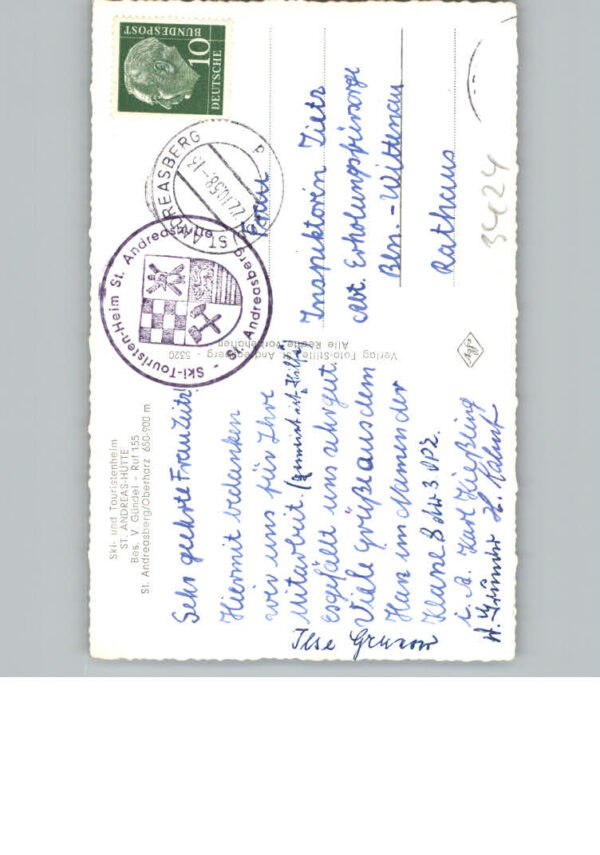 Ski- und Touristenheim
ST. ANDREAS-HÜTTE
Bes. V. Gündel - Ruf 155
St. Andreasberg/Oberharz 650-900 m
Sehr geehrte Frau Zietz!
Hiermit bedanken
wir uns für Ihre
Mitarbeit. (gemeint ist Hilfe)
Es gefällt uns sehr gut.
Viele Grüße aus dem
Harz im Namen der
Klasse 8 der 3. OPZ.
i. A. Karl Kießling
H.
Ilse Gruzow
Verlag Foto-Stille St. Andreasberg - 5320
Alle Rechte Vorbehalten
Agfa
DEUTSCHE
BUNDESPOST
10
ST. ANDREASBERG
58-13
Ski-Touristen-Heim St. Andreashütte
- St. Andreasberg -
Frau
Inspektorin Zietz
Abt. Erholungsfürsorge
Bln.-Wittenau
Rathaus
3424